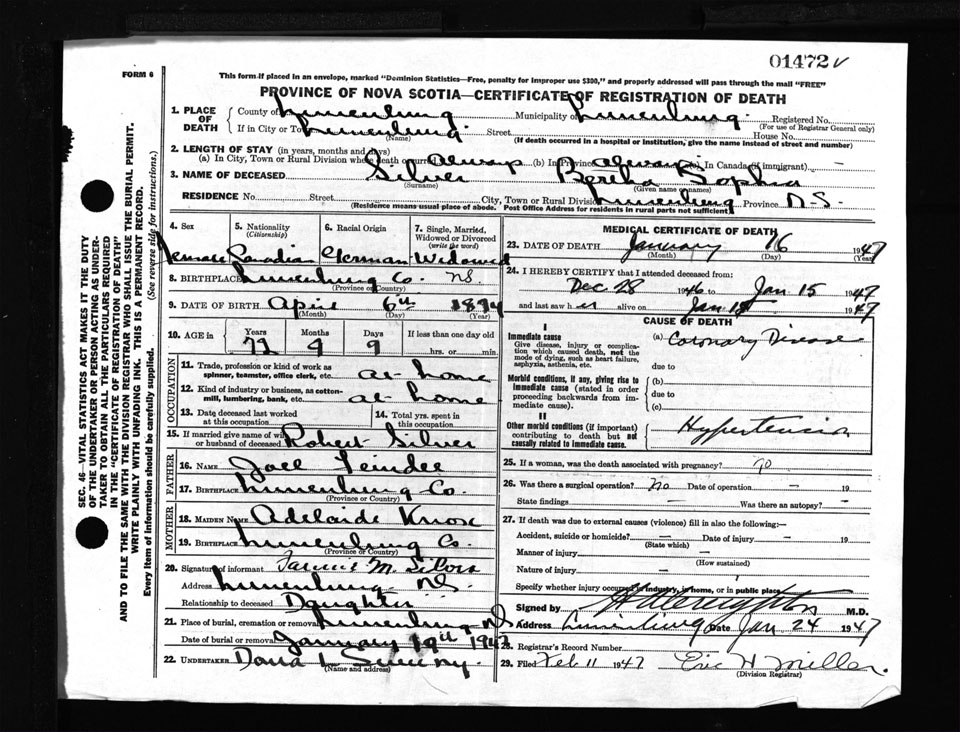 01472
FORM 6
This form if placed in an envelope, marked "Dominion Statistics—Free, penalty for improper use $300," and properly addressed will pass through the mail "FREE"
PROVINCE OF NOVA SCOTIA—CERTIFICATE OF REGISTRATION OF DEATH
1. PLACE OF DEATH
County of Lunenburg Municipality of Lunenburg Registered No.
(For use of Registrar General only)
If in City or Town Lunenburg Street House No.
(Name) (If death occurred in a hospital or institution, give the name instead of street and number)
2. LENGTH OF STAY (in years, months and days)
(a) In City, Town or Rural Division where death occurred Always (b) In Province Always (c) In Canada (if immigrant) —
3. NAME OF DECEASED Silver Bertha Sophia
(Surname) (Given name or names)
RESIDENCE No. Street City, Town or Rural Division Lunenburg Province N.S.
(Residence means usual place of abode. Post Office Address for residents in rural parts not sufficient)
4. Sex 5. Nationality (Citizenship) 6. Racial Origin 7. Single, Married, Widowed or Divorced (write the word)
Female Canadian German Widowed
8. BIRTHPLACE Lunenburg Co. NS.
(Province or Country)
9. DATE OF BIRTH April 6th
(Month) (Day) (Year)
10. AGE in Years Months Days If less than one day old
9 9 hrs. or min.
OCCUPATION
11. Trade, profession or kind of work as spinner, teamster, office clerk, etc. at home
12. Kind of industry or business, as cotton-mill, lumbering, bank, etc. at home
13. Date deceased last worked at this occupation
14. Total yrs. spent in this occupation
15. If married give name of wife or husband of deceased Robert Silver
FATHER
16. NAME Joel
17. BIRTHPLACE Lunenburg Co.
(Province or Country)
MOTHER
18. MAIDEN NAME Adelaide
19. BIRTHPLACE Lunenburg Co.
(Province or Country)
20. Signature of informant M. Silver
Address Lunenburg NS.
Relationship to deceased Daughter
21. Place of burial, cremation or removal Lunenburg NS
Date of burial or removal January 19th 1947
22. UNDERTAKER
(Name and address)
MEDICAL CERTIFICATE OF DEATH
23. DATE OF DEATH January 16 1947
(Month) (Day) (Year)
24. I HEREBY CERTIFY that I attended deceased from:
Dec 28 1946 to Jan 15 1947
and last saw her alive on Jan 15 1947
CAUSE OF DEATH
I
Immediate cause
Give disease, injury or complication which caused death, not the mode of dying, such as heart failure, asphyxia, asthenia, etc.
(a) Coronary Disease
due to
Morbid conditions, if any, giving rise to immediate cause (stated in order proceeding backwards from immediate cause).
(b)
due to
(c)
II
Other morbid conditions (if important) contributing to death but not causally related to immediate cause.
Hypertension
25. If a woman, was the death associated with pregnancy? no
26. Was there a surgical operation? No Date of operation — 19
State findings — Was there an autopsy? —
27. If death was due to external causes (violence) fill in also the following:—
Accident, suicide or homicide? — Date of injury — 19
(State which)
Manner of injury —
(How sustained)
Nature of injury —
Specify whether injury occurred in industry, in home, or in public place
Signed by M.D.
Address Lunenburg Date Jan 24 1947
28. Registrar's Record Number
29. Filed Feb 11 1947 Eric H Miller
(Division Registrar)
SEC. 46—VITAL STATISTICS ACT MAKES IT THE DUTY
OF THE UNDERTAKER OR PERSON ACTING AS UNDERTAKER
TO OBTAIN ALL THE PARTICULARS REQUIRED
IN THE "CERTIFICATE OF REGISTRATION OF DEATH"
AND TO FILE THE SAME WITH THE DIVISION REGISTRAR WHO SHALL ISSUE THE BURIAL PERMIT.
WRITE PLAINLY WITH UNFADING INK. THIS IS A PERMANENT RECORD.
Every item of information should be carefully supplied. (See reverse side for instructions.)